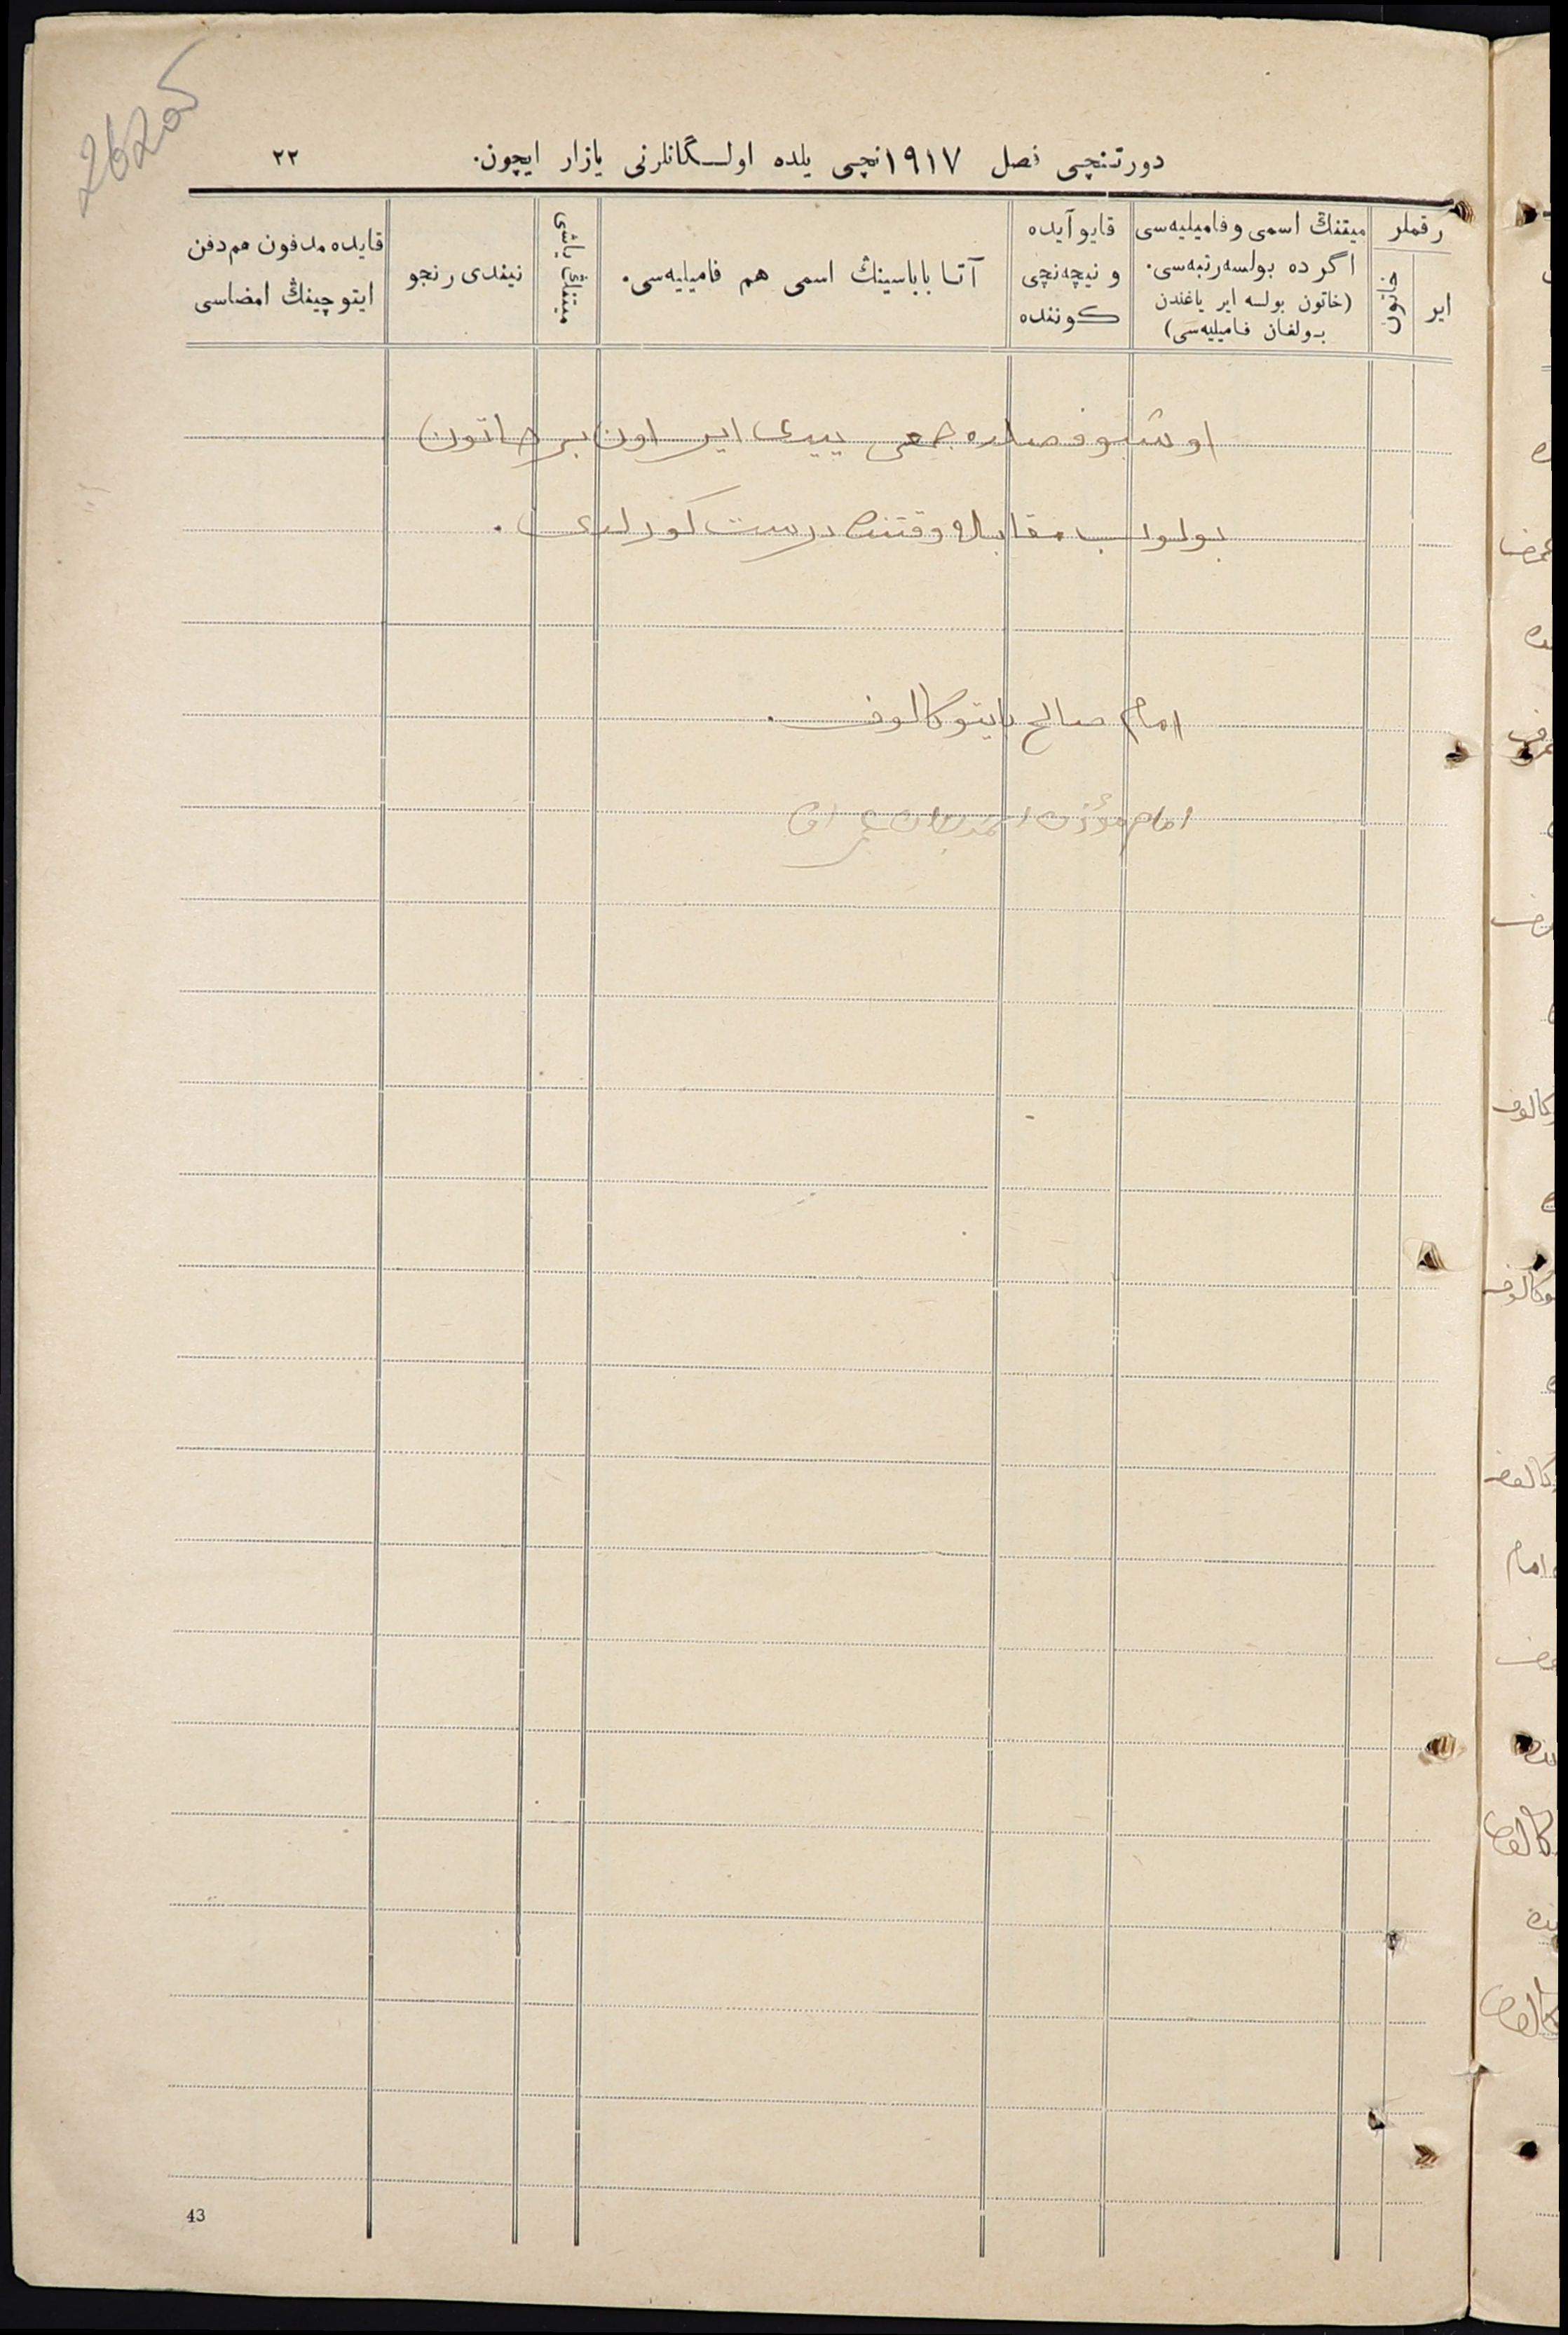 262об
دورتنچی فصل ۱۹۱۷نچی یلده اولــگانلرنی یازار ایچون.
۲۲
رقملر
ایر
خاتون
میتنڭ اسمی و فامیلیه‌سی
اگر ده بولسه رتبه‌سی.
(خاتون بولسه ایر یاغندن
بـولغان فـامیلیه‌سی)
قایو آیده
و نیچه‌نچی
كـوننده
آتـا باباسینڭ اسمی هم فامیلیه‌سی.
میتنڭ یاشی
نیندی رنجو
قایده مدفون هم دفن
ایتو چینڭ امضاسی
اوشبو فصلده جمعی ییدی ایر اون بر خاتون
بولوب مقابله وقتنده درست كورلدی.
امام صالح بایتوكالوف.
امام مؤذن
43